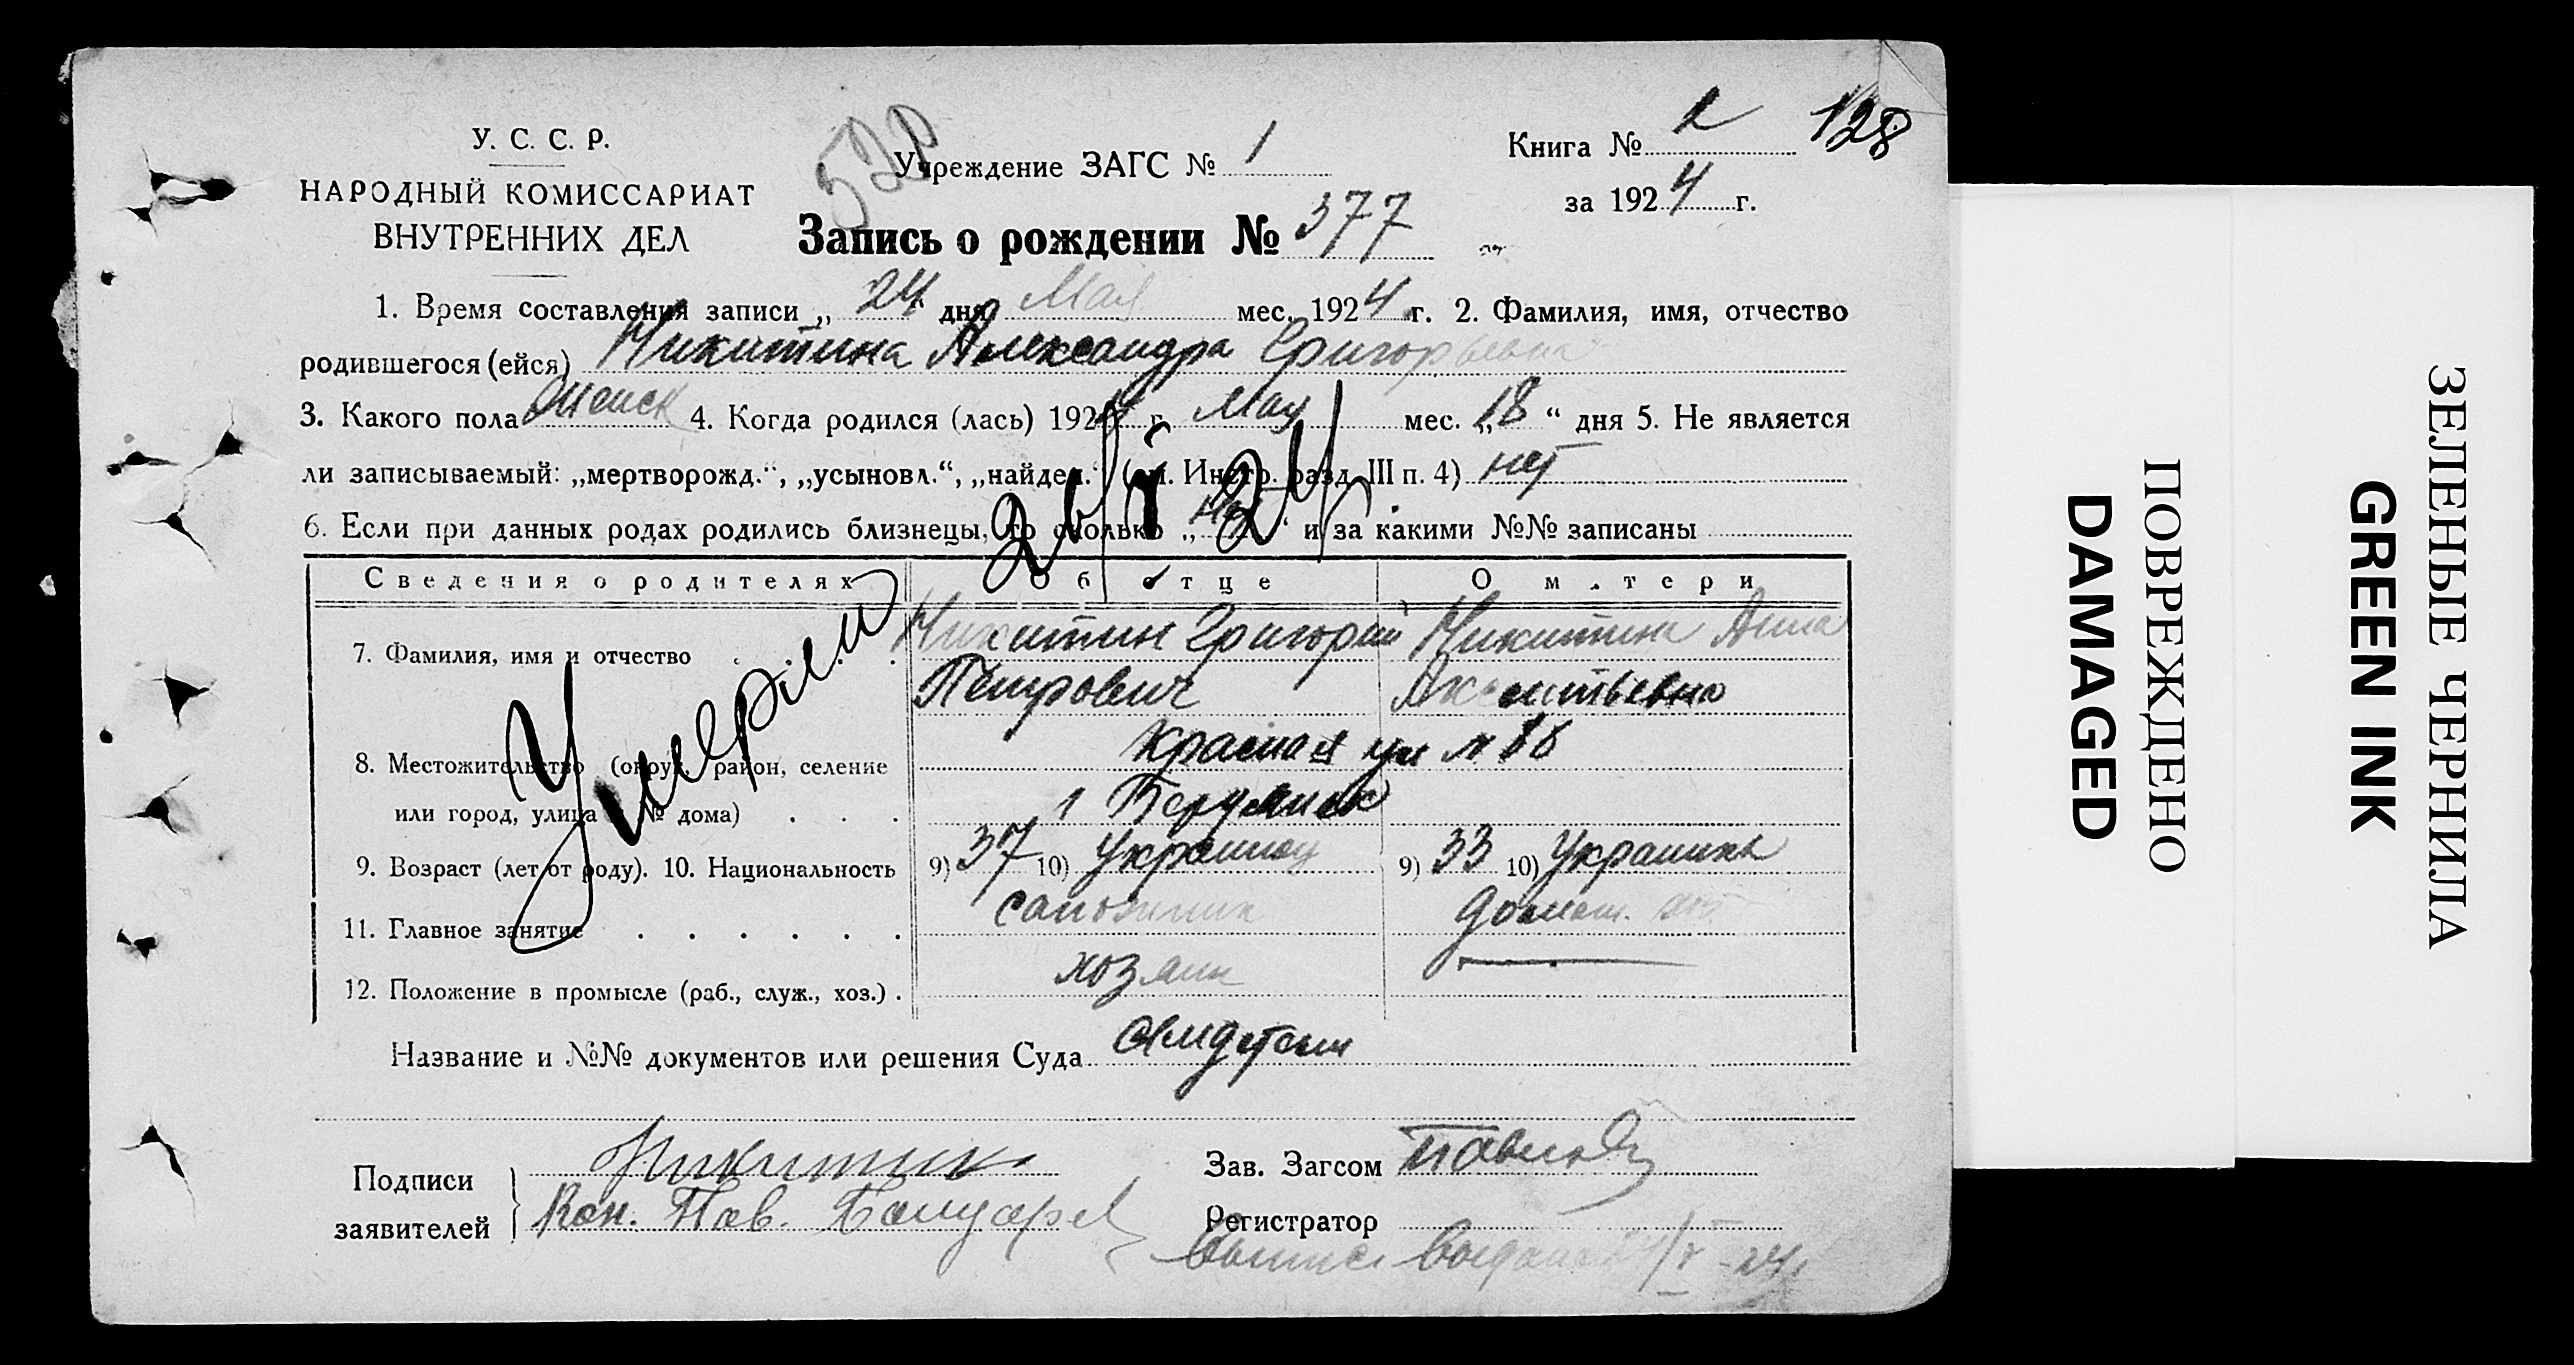 У. С. С. Р.
НАРОДНЫЙ КОМИССАРИАТ
ВНУТРЕННИХ ДЕЛ
Учреждение ЗАГС № 1
Книга № 2 128
за 1924 г.
Запись о рождении № 377
1. Время составления записи „ 24 “ дня Мая мес. 1924 г. 2. Фамилия, имя, отчество
родившегося (ейся) Никитина Александра Григорьевна
3. Какого пола женск 4. Когда родился (лась) 1924 г. Мая мес. „ 18 “ дня 5. Не является
ли записываемый: „мертворожд.“, „усыновл.“, „найден.“ (см. Инстр. разд. III п. 4) нет
6. Если при данных родах родились близнецы, то сколько „ нет “ и за какими №№ записаны
Сведения о родителях Об отце О матери
7. Фамилия, имя и отчество Никитин Григорий Никитина Анна
Петрович Аксентьевна
8. Местожительство (округ, район, селение Красная ул № 88
или город, улица и № дома)
9. Возраст (лет от роду). 10. Национальность 9) 37 10) Украинец 9) 33 10) Украинка
11. Главное занятие сапожник домаш.
12. Положение в промысле (раб., служ., хоз.) хозяин
Умерла
Название и №№ документов или решения Суда
Подписи заявителей Никитин
Кон. Пав.
Зав. Загсом
Регистратор
ПОВРЕЖДЕНО
DAMAGED
ЗЕЛЕНЫЕ ЧЕРНИЛА
GREEN INK